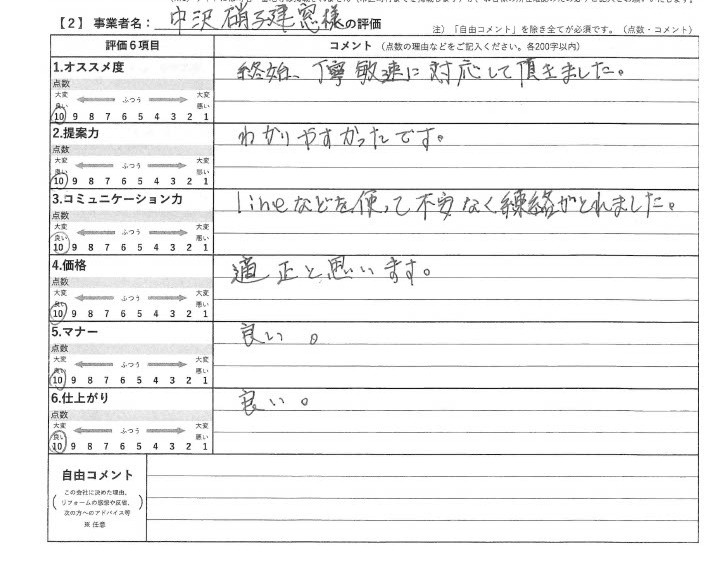 【2】事業者名： 中沢硝子建窓様の評価
注）「自由コメント」を除き全てが必須です。（点数・コメント）
評価６項目 コメント （点数の理由などをご記入ください。各200字以内）
1.オススメ度 終始、丁寧敏速に対応して頂きました。
点数
大変良い ふつう 大変悪い
10 9 8 7 6 5 4 3 2 1
2.提案力 わかりやすかったです。
点数
大変良い ふつう 大変悪い
10 9 8 7 6 5 4 3 2 1
3.コミュニケーション力 lineなどを使って不安なく練絡がとれました。
点数
大変良い ふつう 大変悪い
10 9 8 7 6 5 4 3 2 1
4.価格 適正と思います。
点数
大変良い ふつう 大変悪い
10 9 8 7 6 5 4 3 2 1
5.マナー 良い。
点数
大変良い ふつう 大変悪い
10 9 8 7 6 5 4 3 2 1
6.仕上がり 良い。
点数
大変良い ふつう 大変悪い
10 9 8 7 6 5 4 3 2 1
自由コメント
（この会社に決めた理由、
リフォームの感想や反省、
次の方へのアドバイス等）
※ 任意